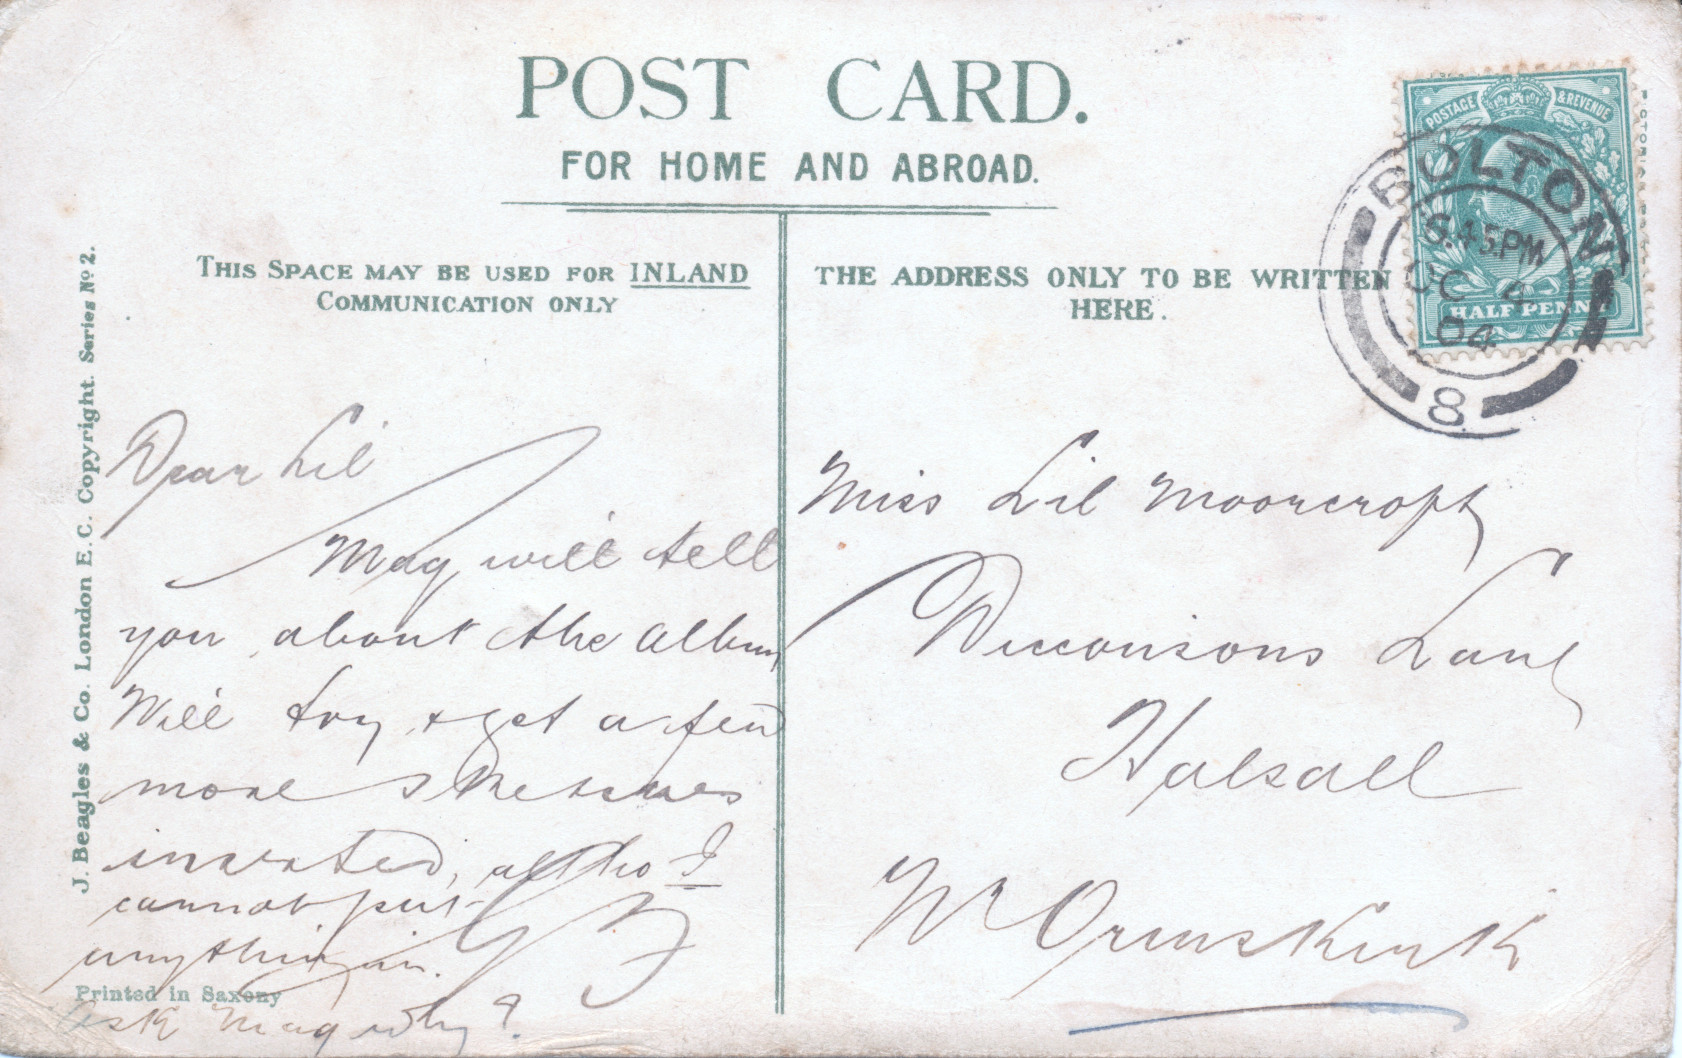 POST CARD.
FOR HOME AND ABROAD.
THIS SPACE MAY BE USED FOR INLAND
COMMUNICATION ONLY
THE ADDRESS ONLY TO BE WRITTEN
HERE.
POSTAGE & REVENUE
HALF PENNY
BOLTON
6.45PM
OC 4
04
8
J. Beagles & Co. London E.C. Copyright. Series No 2.
Dear Lil
Mag will tell
you about the album
Will try & get a few
more sketches
inserted, altho I
cannot put
anything in.
Ask Mag why?
Printed in Saxony
Miss Lil Moorcroft
Dicconsons Lane
Halsall
Nr Ormskirk